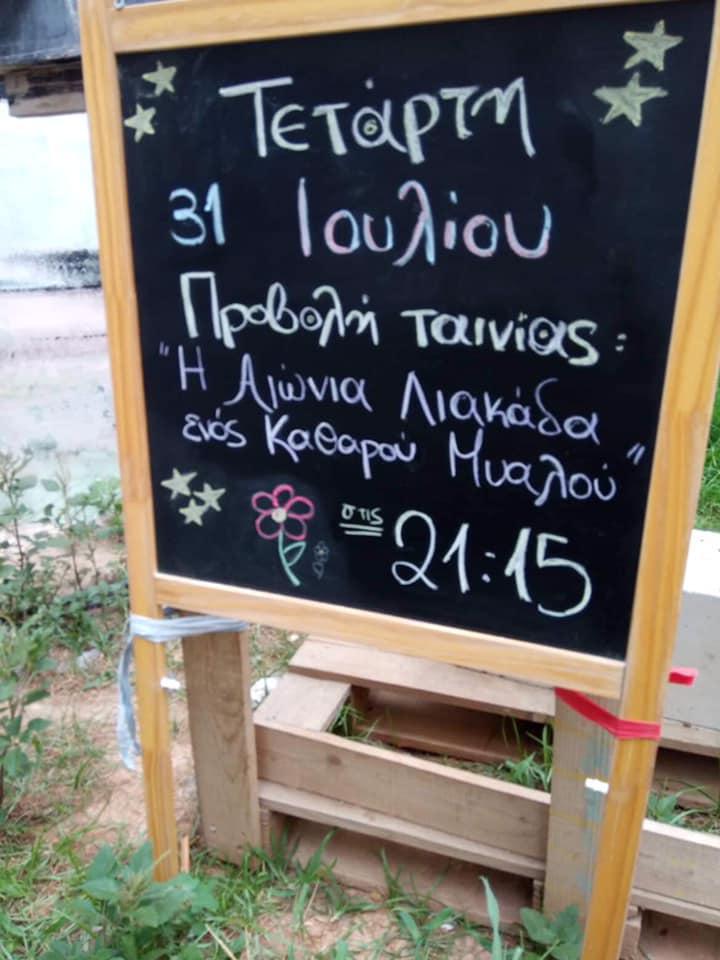 Τετάρτη
31 Ιουλίου
Προβολή ταινίας:
"Η Αιώνια Λιακάδα
ενός Καθαρού Μυαλού"
στις 21:15